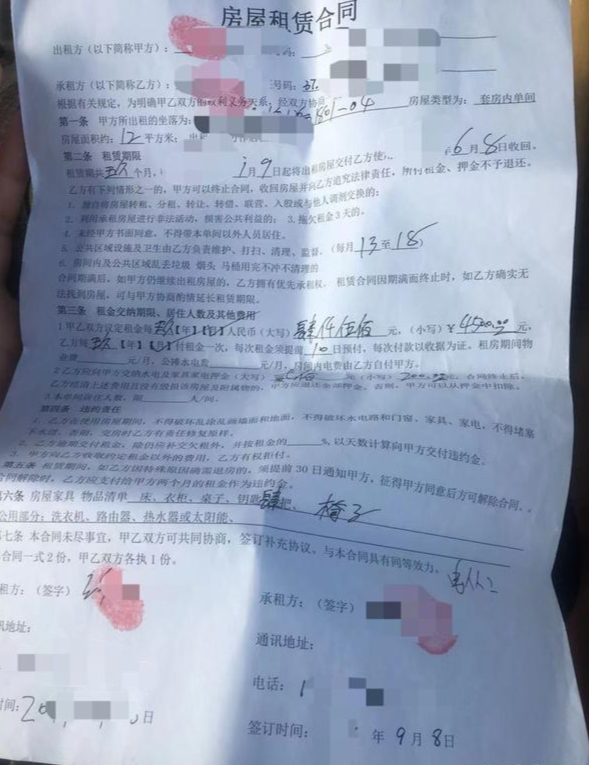 房屋租赁合同
出租方（以下简称甲方）：
承租方（以下简称乙方）：
根据有关规定，为明确甲乙双方的权利义务关系，经双方协商
第一条 甲方所出租的坐落为： 房屋类型为： 套房内单间
房屋面积约：12平方米；
第二条 租赁期限
租赁期共 个月， 月9日起将出租房屋交付乙方使 6月8日收回。
乙方有下列情形之一的，甲方可以终止合同，收回房屋并向乙方追究法律责任，所付租金、押金不予退还。
1. 擅自将房屋转租、分租、转让、转借、联营、入股或与他人调剂交换的；
2. 利用承租房屋进行非法活动，损害公共利益的； 3. 拖欠租金3天的。
4. 未经甲方书面同意，不得带本单间以外人员居住。
5. 公共区域设施及卫生由乙方负责维护、打扫、清理、监督。（每月13至18）
6. 房间内及公共区域乱丢垃圾 烟头 马桶用完不冲不清理的
合同期满后，如甲方仍继续出租房屋的，乙方拥有优先承租权。 租赁合同因期满而终止时，如乙方确实无
法找到房屋，可与甲方协商酌情延长租赁期限。
第三条 租金交纳期限、居住人数及其他费用
1 甲乙双方议定租金每 【年】【月】人民币（大写）肆仟伍佰元，（小写）￥4500.00元，
乙方每 【年】【月】付租金一次，每次租金须提前10日预付，每次付款以收据为证。租房期间物
业费 元/月，公摊水电费 元/月，房间内电费由乙方自付甲方。
2 乙方应向甲方交纳水电及家具家电押金（大写） 元（小写）200.00元，合同终止后，
乙方结清上述费用且没有毁损该房屋及附属物的，甲方应退还全部押金。否则，甲方可以从押金中扣除。
3 本单间居住人数，限 人/间。
第四条 违约责任
1. 乙方在使用房屋期间，不得破坏乱涂乱画墙面和地面，不得破坏水电路和门窗、家具、家电，不得堵塞
2. 乙方逾期交付租金，除仍应补交欠租外，并按租金的 %，以天数计算向甲方交付违约金。
3. 甲方向乙方收取约定租金以外的费用，乙方有权拒付。
第五条 租赁期间，如乙方因特殊原因确需退房的，须提前30日通知甲方，征得甲方同意后方可解除合同，
合同解除时，乙方应支付给甲方两个月的租金作为违约金。
第六条 房屋家具 物品清单 床、衣柜、桌子、钥匙 把、 椅子
公用部分：洗衣机、路由器、热水器或太阳能、
第七条 本合同未尽事宜，甲乙双方可共同协商，签订补充协议，与本合同具有同等效力。
合同一式2份，甲乙双方各执1份。
租方：（签字）
承租方：（签字）
讯地址：
通讯地址：
电话：1
时间：20 日
签订时间： 年9月8日